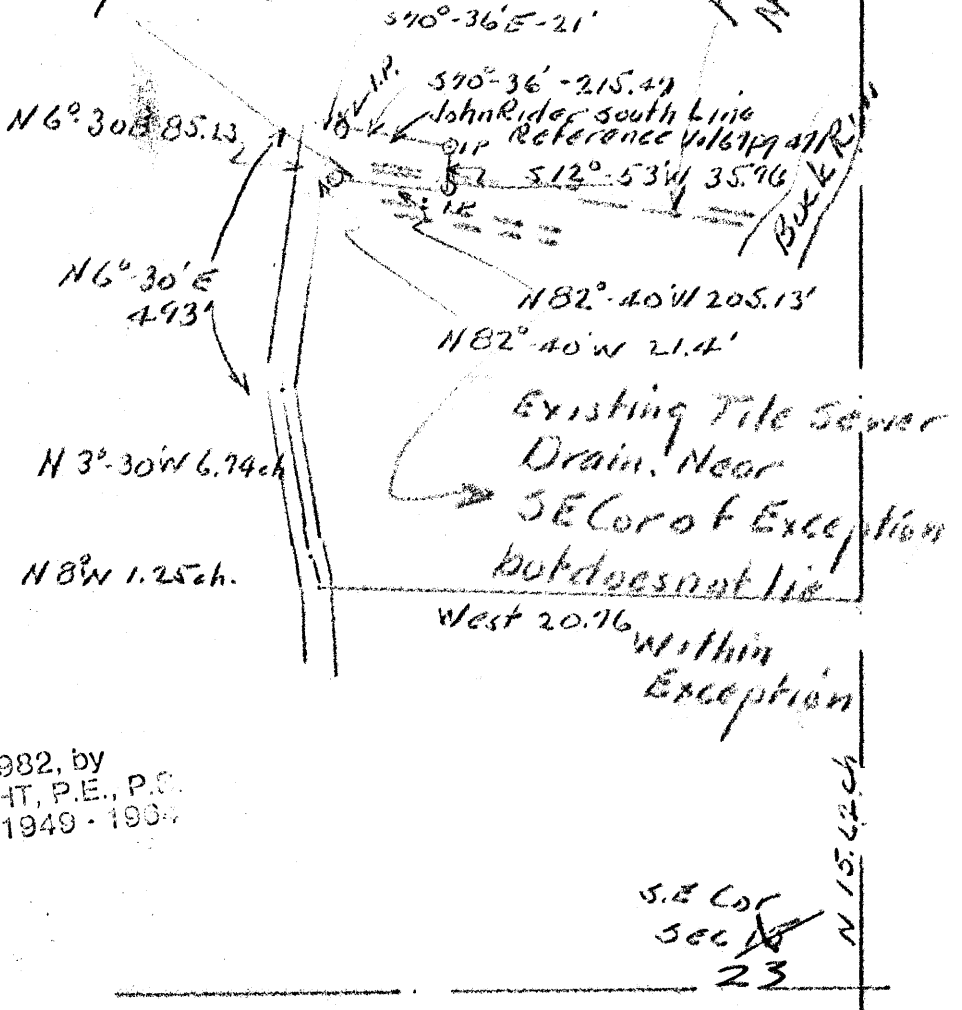 S70°-36'E-21'
I.P.
S70°-36' -215.47
John Rider South Line
Reference Vol67Pg 471
N6°-30'E 85.13
I.P.
S12°-53'W 35.76
Buck
N6°-30'E
493'
N82°-40'W 205.13'
N82°-40'W 21.4'
Existing Tile Sewer
Drain. Near
SE Cor of Exception
but does not lie
Within
Exception
N3°-30'W 6.74ch
N8°W 1.25ch.
West 20.76
982, by
HT, P.E., P.S.
1949 - 1964
N 15.62ch
S.E Cor
Sec
23